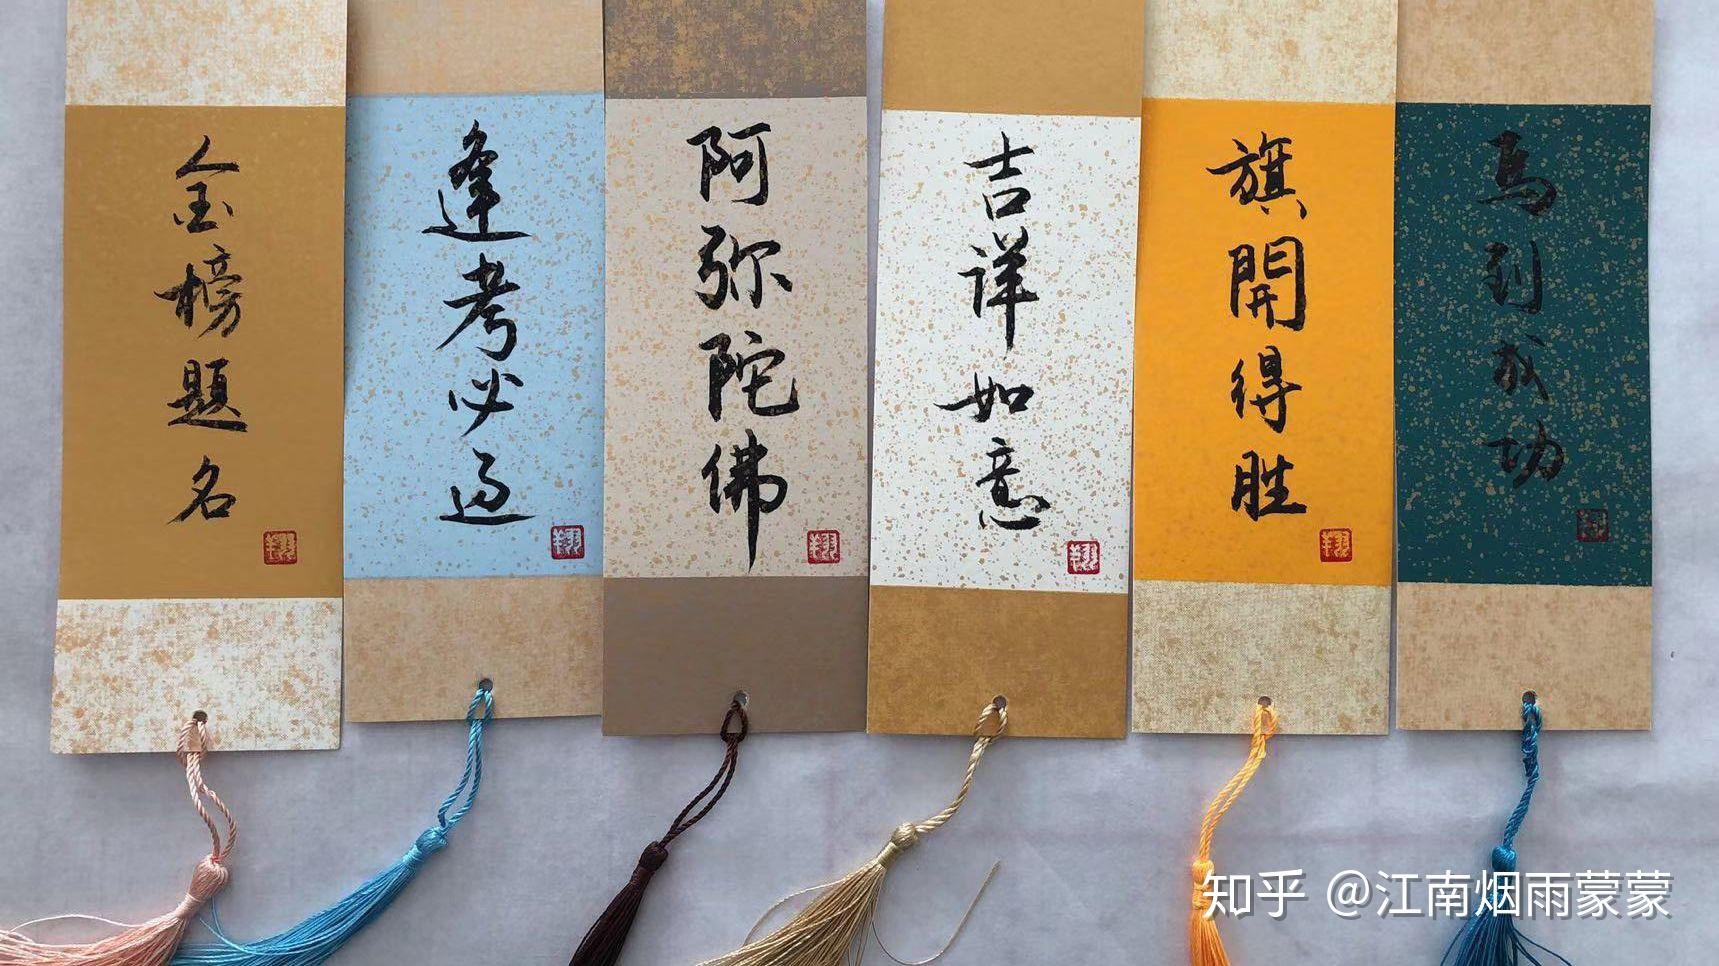 金榜题名
逢考必过
阿弥陀佛
吉祥如意
旗開得胜
馬到成功
知乎 @江南烟雨蒙蒙